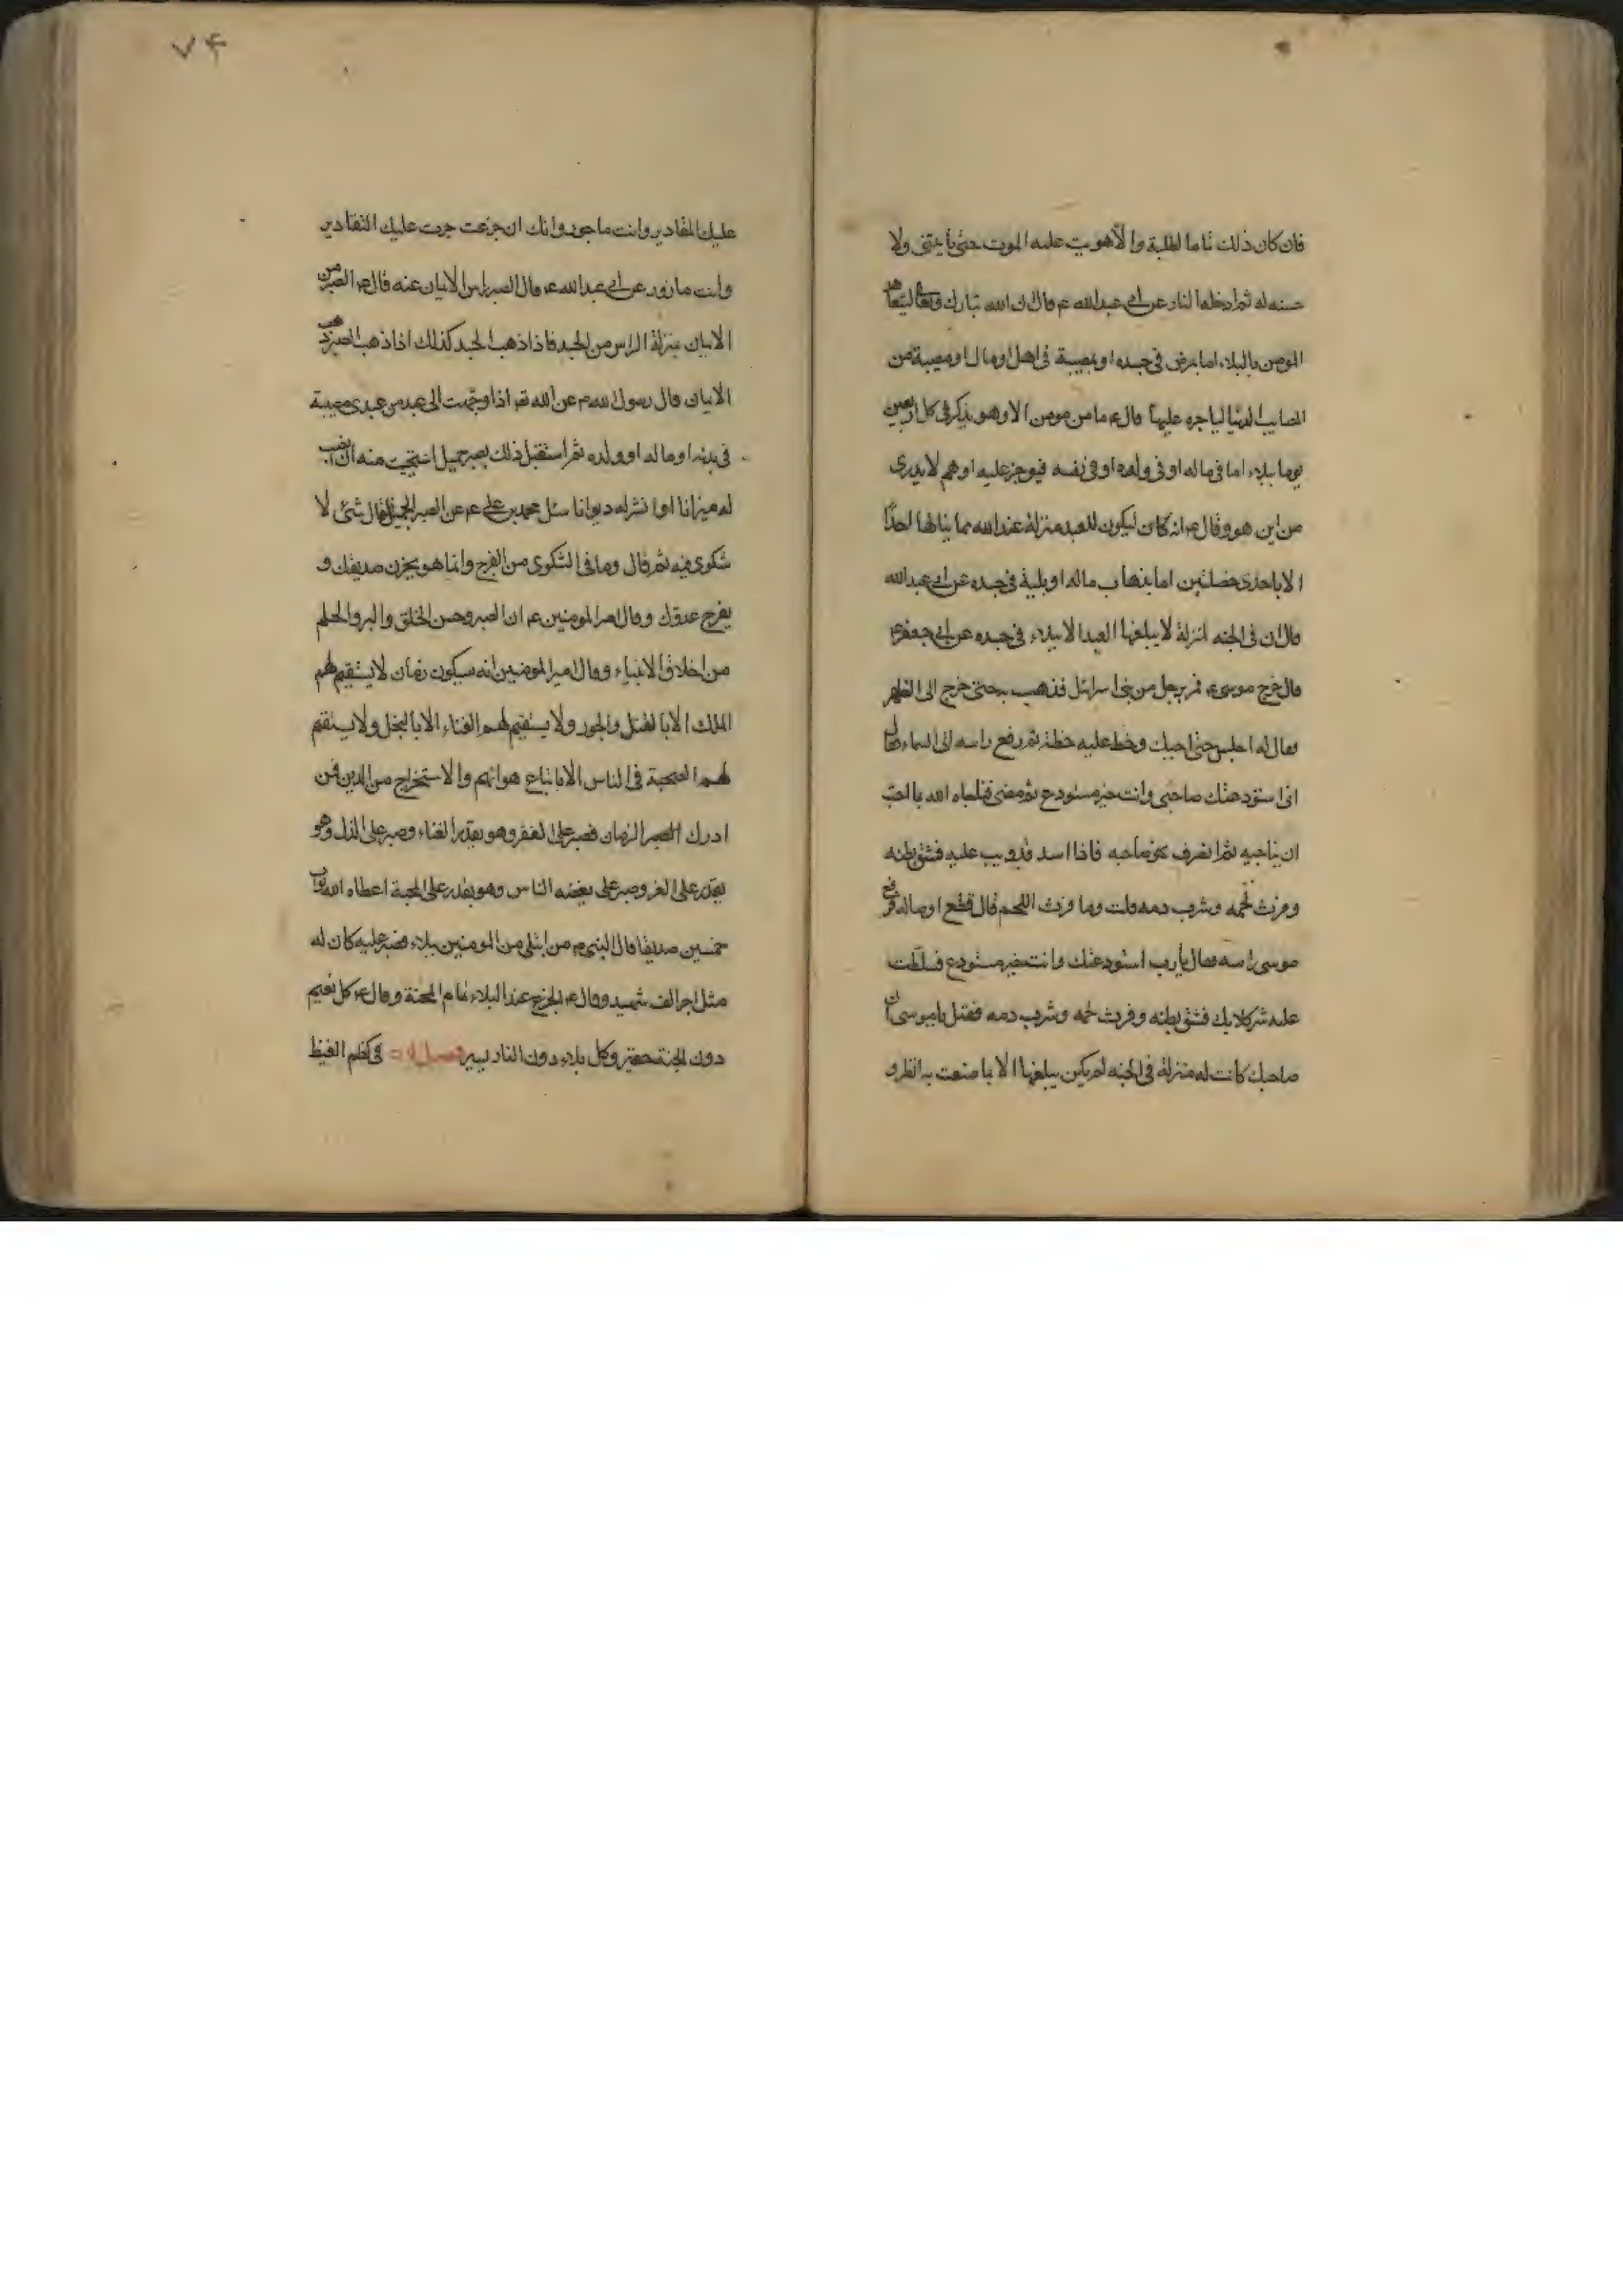 فان كان ذلك تماما لطلبة والا هويت عليه الموت حتى يأتيني ولا
حسنه له ثم ادخله النار عن ابى عبدالله ع قال ان الله تبارك وتعالى ليتعاهد
المومن بالبلاء اما بمرض فى جسده او بمصيبة فى اهل او مال او مصيبة من
المصايب الدنيا لياجره عليها قال ع ما من مومن الا وهو يذكر فى كل اربعين
يوما ببلاء اما فى ماله او فى ولده او فى نفسه فيوجر عليه او هم لا يدرى
من اين هو وقال ع انه كان ليكون للعبد منزلة عند الله مما ينالها احدًا
الا باحدى خصلتين اما بذهاب ماله او بلية فى جسده عن ابى عبدالله
قال ان فى الجنه لمنزلة لا يبلغها العبد الا ببلاء فى جسده عن ابى جعفر ع
قال خرج موسى ع فمر برجل من بنى اسرائل فذهب به حتى خرج الى الظهر
فقال له اجلس حتى اجيك وخط عليه خطة ثم رفع راسه الى السماء وقال
انى استودعتك صاحبى وانت خير مستودع ثم مضى فناجاه الله بما احب
ان يناجيه ثم انصرف نحو صاحبه فاذا اسد قد وثب عليه فشق بطنه
وفرث لحمه وشرب دمه قلت وما فرث اللحم قال قطع اوصاله فرفع
موسى راسه فقال يارب استودعتك وانت خير مستودع فسلطت
عليه شر كلابك فشق بطنه وفرث لحمه وشرب دمه فقيل ياموسى ان
صاحبك كانت له منزلة فى الجنه لم يكن يبلغها الا بما صنعت به انظر و
۷۴
عليك المقادير وانت ماجور وانك ان جزعت جرت عليك التقادير
وانت مازور عن ابى عبدالله ع قال الصبر راس الايمان عنه قال ع الصبر من
الايمان بمنزلة الراس من الجسد فاذا ذهب الجسد كذلك اذا ذهب الصبر ذهب
الايمان قال رسول الله ص عن الله تع اذا وجهت الى عبد من عبيدى مصيبة
فى بدنه او ماله او ولده ثم استقبل ذلك بصبر جميل استحييت منه ان انصب
له ميزانا او انشر له ديوانا سئل محمد بن على ع عن الصبر الجميل فقال شئ لا
شكوى فيه ثم قال وما فى الشكوى من الفرج وانما هو يحزن صديقك و
يفرح عدوك وقال امير المومنين ع ان الصبر وحسن الخلق والبر والحلم
من اخلاق الانبياء وقال امير المومنين انه سيكون زمان لا يستقيم لهم
الملك الا بالقتل والجور ولا يستقيم لهم الغناء الا بالبخل ولا يستقم
لهم الصحبة فى الناس الا باتباع هوائهم والاستخراج من الدين فمن
ادرك الزمان فصبر على الفقر وهو يقدر الغناء وصبر على الذل وهو
يقدر على العز وصبر على بغضه الناس وهو يقدر على المحبة اعطاه الله ثواب
خمسين صديقا قال النبى ص من ابتلى من المومنين ببلاء فصبر عليه كان له
مثل اجر الف شهيد وقال ع الجزع عند البلاء تمام المحنة وقال ع كل نعيم
دون الجنة حقير وكل بلاء دون النار يسير فصل فى كظم الغيظ